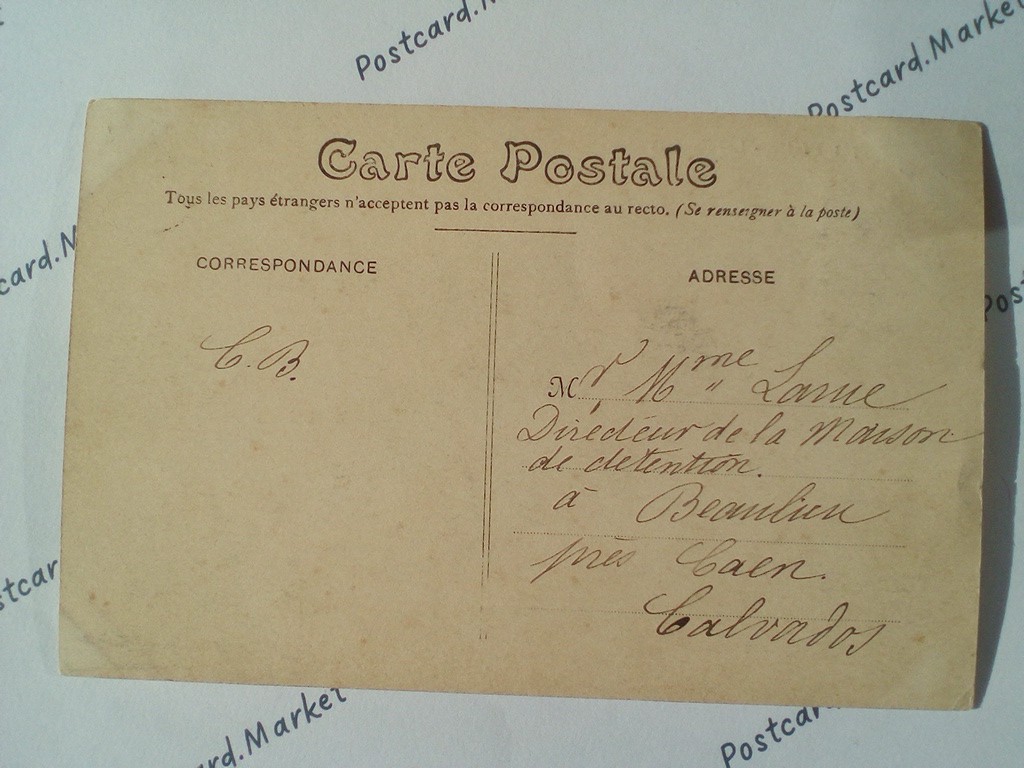 Postcard.Market
Postcard.Market
Carte Postale
Tous les pays étrangers n'acceptent pas la correspondance au recto. (Se renseigner à la poste)
CORRESPONDANCE
ADRESSE
C. B.
Mr, Mme Larue
Directeur de la Maison
de detention.
à Beaulieu
près Caen.
Calvados
card.M
Pos
stcar
card.Market
Postcar